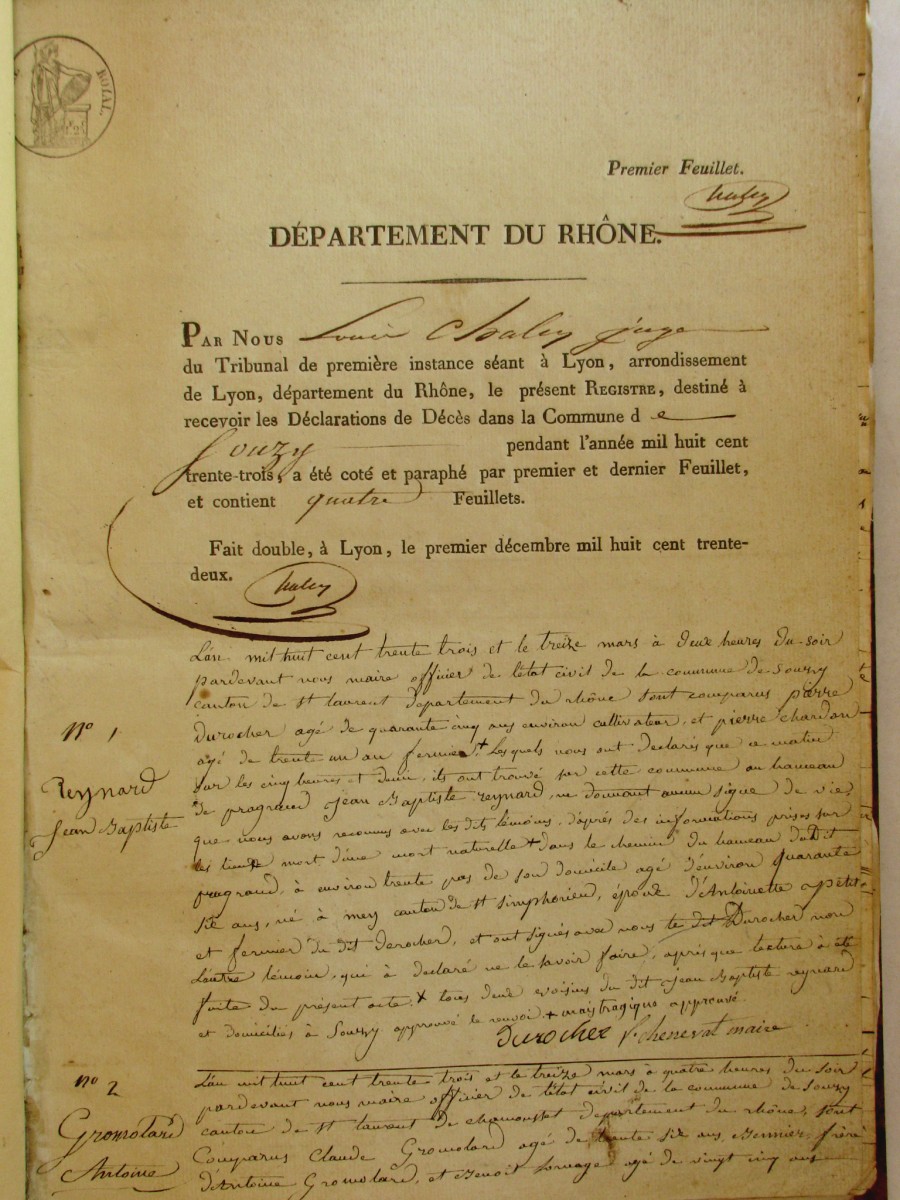 ROYAL.
Premier Feuillet.
Chaley
DÉPARTEMENT DU RHÔNE.
PAR NOUS Louis Chaley juge
du Tribunal de première instance séant à Lyon, arrondissement
de Lyon, département du Rhône, le présent REGISTRE, destiné à
recevoir les Déclarations de Décès dans la Commune d e
Souzy pendant l'année mil huit cent
trente-trois, a été coté et paraphé par premier et dernier Feuillet,
et contient quatre Feuillets.
Fait double, à Lyon, le premier décembre mil huit cent trente-
deux. Chaley
L'an mil huit cent trente trois et le treize mars à deux heures du soir
pardevant nous maire officier de l'état civil de la commune de Souzy
canton de st laurent departement du rhône sont comparus pierre
Durocher agé de quarante cinq ans environ cultivateur, et pierre chardon
agé de trente un an fermier +. Lesquels nous ont declarés que ce matin
sur les cinq heures et demi, ils ont trouvé sur cette commune au hameau
de pragrand Jean Baptiste reynard, ne donnant aucun signe de vie,
que nous avons reconnu avec les dits témoins, d'après des informations prises sur
les lieux mort d'une mort naturelle + dans le chemin du hameau du dit
pragrand, à environ trente pas de son domicile agé d'environ quarante
six ans, né à mey canton de st simphorien, époux d'Antoinette petit
et fermier du dit derocher, et ont signés avec nous le dit Durocher non
l'autre témoin, qui à declaré ne le savoir faire, après que lecture à été
faite du présent acte. + tous deux voisins du dit Jean Baptiste reynard
et domiciliés à Souzy approuvé le renvoi. + mais tragique approuvé.
Durocher V. cheneval maire
no 1
Reynard
Jean Baptiste
L'an mil huit cent trente trois et le treize mars à quatre heures du soir
pardevant nous maire officier de l'état civil de la commune de Souzy
canton de st laurent de chamousset departement du rhône, sont
Comparus Claude Gromolard agé de trente six ans, frère
d'Antoine Gromolard, et Benoit agé de vingt cinq ans
no 2
Gromolard
Antoine